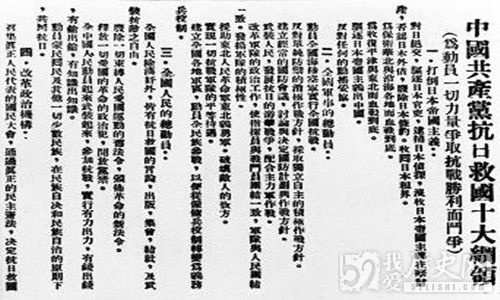 中國共產黨抗日救國十大綱領
(爲動員一切力量爭取抗戰勝利而鬥爭)
一、打倒日本帝國主義。
對日絕交，驅逐日本官吏，逮捕日本偵探，沒收日本帝國主義在華財
產，否認日本外債，廢除日本條約，收回日本租界。
爲保衛華北與沿海各地而血戰到底。
爲收復平津與東北而血戰到底。
驅逐日本帝國主義出中國。
反對任何的動搖妥協。
二、全國軍事的總動員。
動員全國海陸空軍實行全國抗戰。
反對單純防禦的消極作戰方針，採取獨立自主的積極作戰方針。
建立經常的國防會議，討論與決定國防計劃與作戰方針。
武裝人民，發展抗日的游擊戰爭，配合主力軍作戰。
改革軍隊的政治工作，使指揮員與戰鬥員團結一致，軍隊與人民團結
一致，發揚軍隊的積極性。
援助東北人民革命軍東北義勇軍，破壞敵人的後方。
實現一切抗戰軍隊的平等待遇。
建立全國各地軍區，動員全民族參戰，以便從僱傭兵役制轉變爲義務
兵役制。
三、全國人民的總動員。
全國人民除漢奸外，皆有抗日救國的言論，出版，集會，結社，及武
裝抗敵之自由。
廢除一切束縛人民愛國運動的舊法令，頒佈革命的新法令。
釋放一切愛國的革命的政治犯，開放黨禁。
全中國人民動員起來武裝起來，參加抗戰，實行有力出力，有錢出錢
有槍出槍，有知識出知識。
動員蒙民回民及其他一切少數民族，在民族自決和民族自治的原則下
共同抗日。
四、改革政治機構。
召集眞正人民代表的國民大會，通過眞正的民主憲法，決定抗日救國
52 我爱历史网
52lishi.com